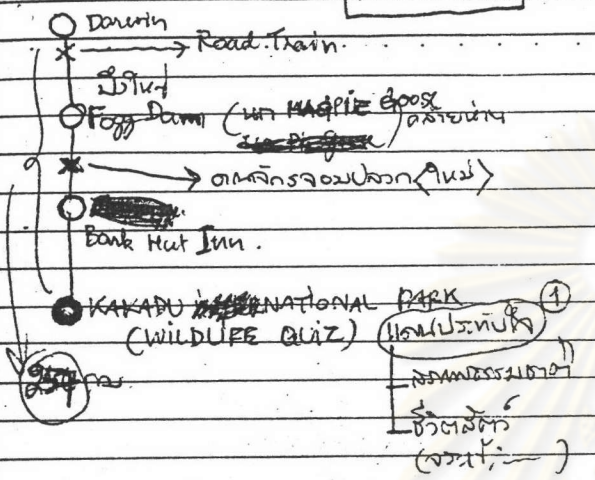 Darwin
Road Train.
บึงใหญ่
Fogg Dam (นก MAGPIE GOOSE) คล้ายห่าน
อาณาจักรจอมปลวก <ใหม่>
Bark Hut Inn.
KAKADU NATIONAL PARK ①
(WILDLIFE QUIZ) แดนประทับใจ
สภาพธรรมชาติ
ชีวิตสัตว์